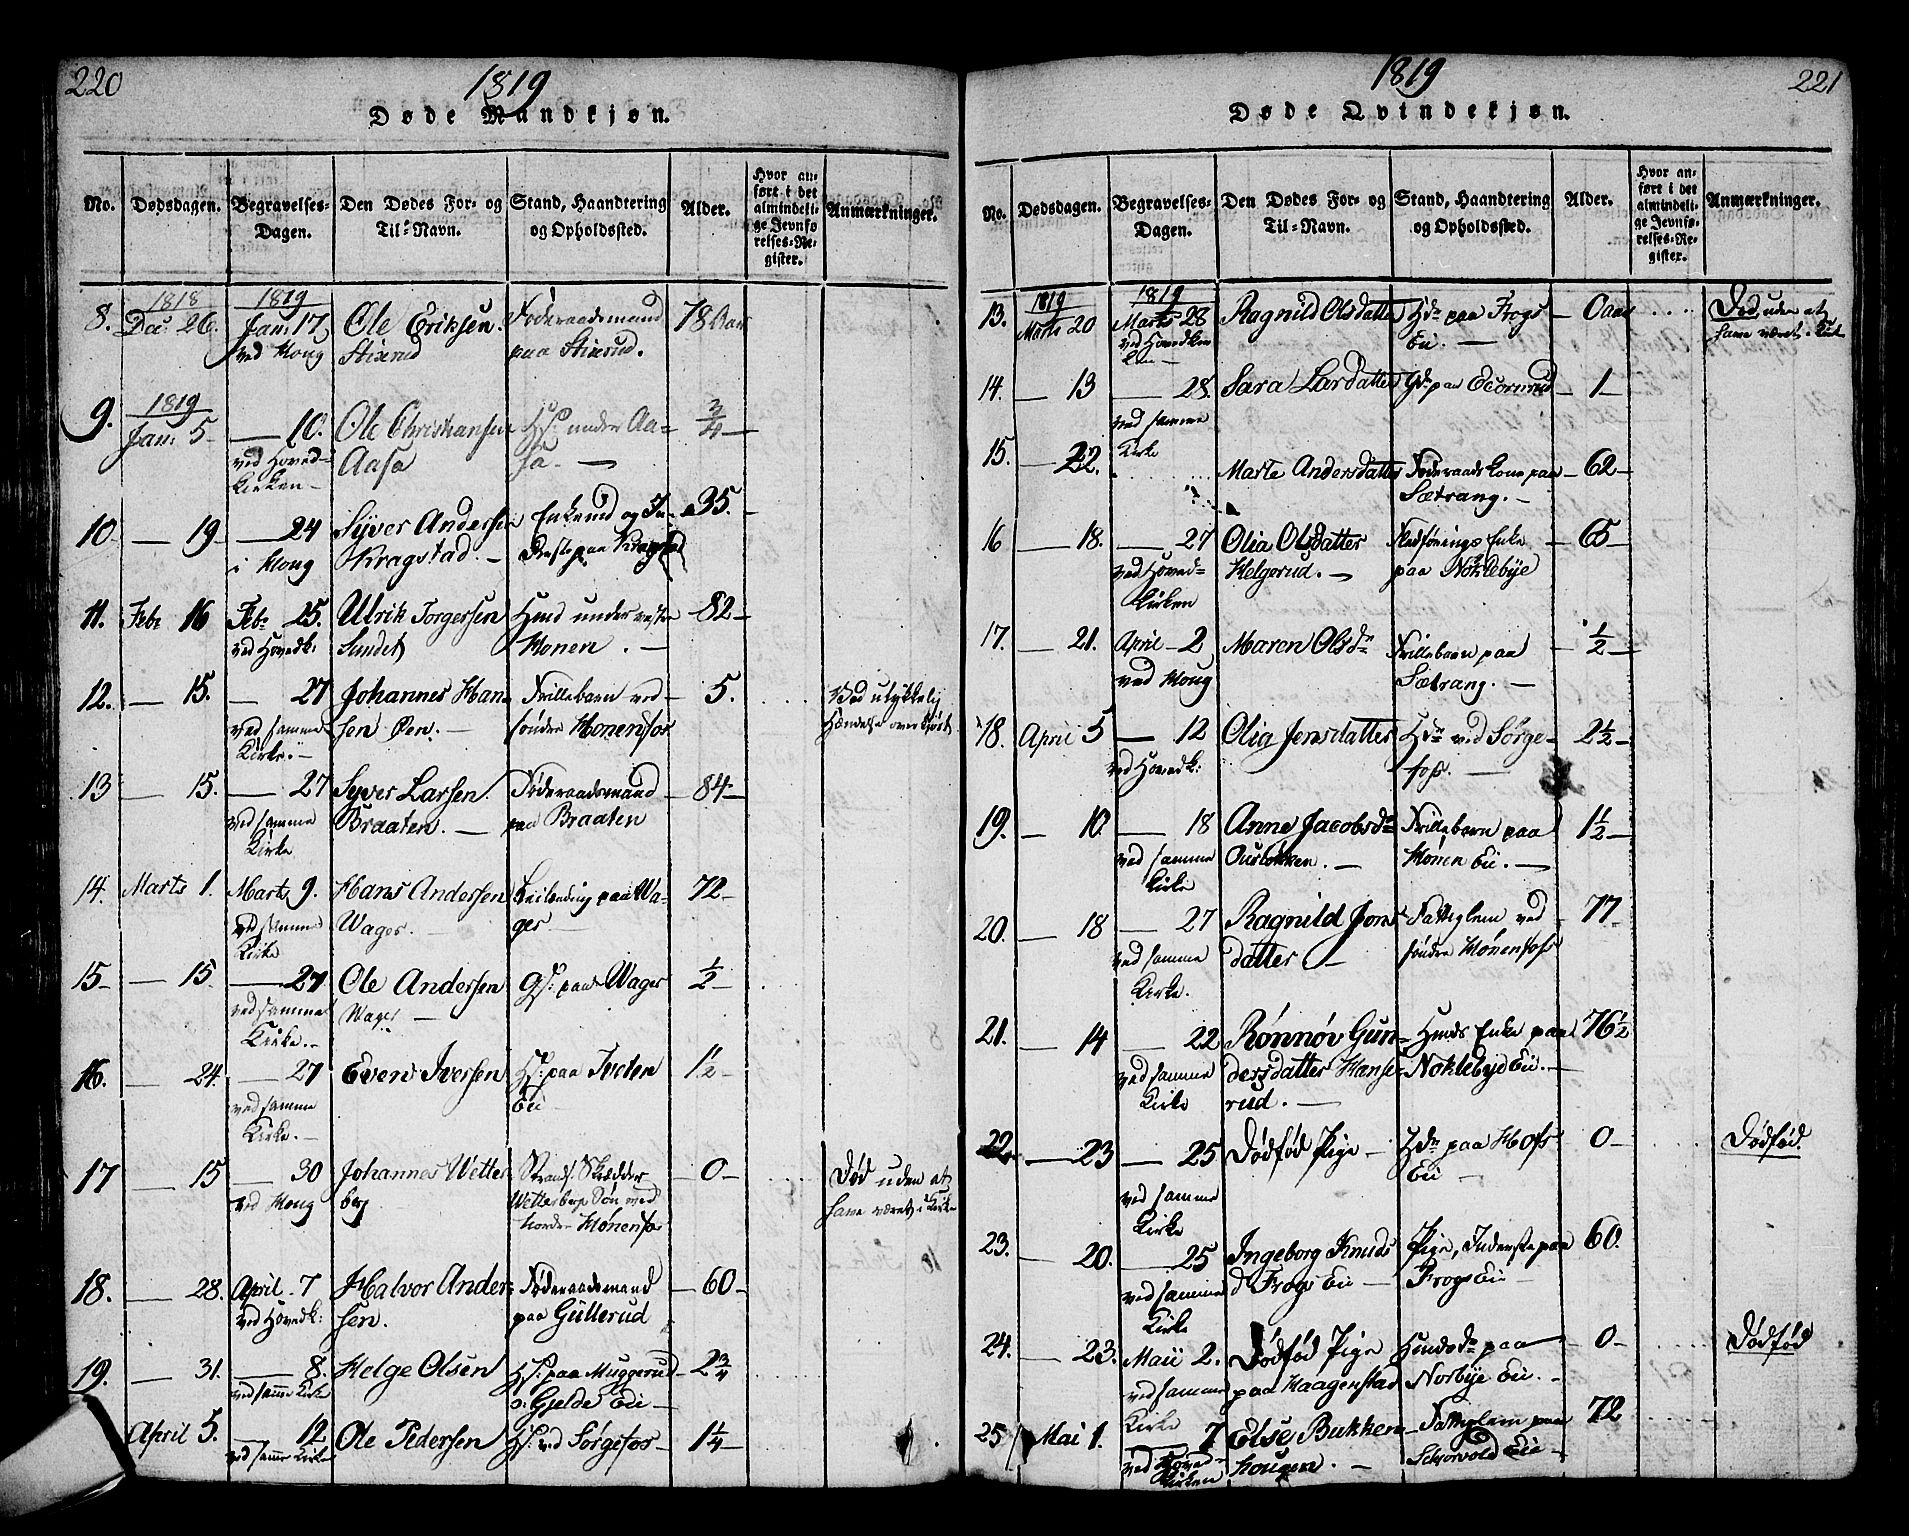 220
1819
Døde Mandkjøn.
No.
Dødsdagen.
Begravelses-
Dagen.
Den Dødes For- og
Til-Navn.
Stand, Haandtering
og Opholdssted.
Alder.
Hvor an-
ført i det
almindeli-
ge Jevnfø-
relses-Re-
gister.
Anmærkninger.
8.
1818
Dec: 26.
1819
Jan: 17.
ved Houg
Ole Eriksen
Stixrud
Føderaadsmand
paa Stixrud.
78 Aar
9.
1819
Jan: 5
10.
ved Hoved-
kirken
Ole Christiansen
Aasa
under Aa-
sa.
3/4
10
19
24
i Houg
Syver Andersen
Kragstad.
35.
11.
Febr 16
Feb: 25.
ved Hovedk:
Ulrik Torgersen
Sundet
Huusmand under vestre
Honen.
82
12.
15.
27
ved samme
Kirke.
Johannes Han-
sen Øen.
Frillebarn ved
søndre Honenfos
5.
Ved ulykkelig
Hændelse
13
15.
27
ved samme
Kirke
Syver Larsen
Braaten.
Føderaadsmand
paa Braaten
84
14.
Marts 1.
Marts 9.
ved samme
Kirke
Hans Andersen
Wager.
paa Wa-
ger
72
15
15.
27
ved samme
Kirke.
Ole Andersen
Wager
Gs: paa Wager
1/2
16.
24.
27
ved samme
Kirke.
Even Iversen
Hs: paa Tveten
Eie
1 1/2
17
15
30
ved Houg
Johannes Wetter-
berg
Skrædder
Wetterbergs Søn ved
nordre Hønenfos
0
Død uden at
have været i Kirke
18.
28.
April 7
ved Hovedk:
Halvor Ander-
sen.
Føderaadsmand
paa Gullerud
60
19.
31.
8.
ved samme Kirke
Helge Olsen
Hs: paa Muggerud
o: Gjelde Eie
2 3/4
April 5.
12
ved samme Kirke
Ole Pedersen
Hs: ved Sørgefos
1 1/4
1819
221
Døde Qvindekjøn.
No.
Dødsdagen.
Begravelses-
Dagen.
Den Dødes For- og
Til-Navn.
Stand, Haandtering
og Opholdssted.
Alder.
Hvor an-
ført i det
almindeli-
ge Jevnfø-
relses-Re-
gister.
Anmærkninger.
13.
1819
Marts 20
1819
Marts 28
ved Hovedkir-
Ragnild Olsdatter
Hdr paa Frogs
Eie.
0 Aar
Død uden at
have været i Kirke
14.
13
28.
ved samme
Kirke
Sara Larsdatter
Gdr paa Ecornrud
1
15.
22.
Marte Andersdatter
Føderaadskone paa
Sætrang.
62
16
18.
27
ved Hoved-
kirken
Olia Olsdatter
Helgerud.
Enke
paa Noklebye
65
17.
21.
April 2
ved Houg
Maren Olsdr
Frillebarn paa
Sætrang.
1/2
18.
April 5
12
ved Hovedk:
Olia Jensdatter
Hdr ved Sørge-
fos.
2 1/2
19.
10.
18
ved samme
Kirke
Anne Jacobsdr
Frillebarn paa
Hønen Eie.
1 1/2
20.
18
27
ved samme
Kirke.
Ragnild Jons-
datter
Fattiglem ved
søndre Hønenfos
77
21.
14
22
ved samme
Kirke
Rønnøv Gun-
dersdatter Hanse-
rud.
Huusmands Enke paa
Noklebye Eie.
76 1/2
22.
23
25
ved samme
Kirke
Dødfød Pige
paa Hofs
Eie
0
Dødfød
23.
20.
25
ved samme
Kirke
Ingeborg Knuds
d Frogs Eie
Pige, Inderste paa
Frogs Eie
60.
24.
23.
Maii 2.
ved samme
Kirke
Dødfød Pige
paa Haagenstad
paa
Norbye Eie.
0
Dødfød
25
Mai 1.
7
ved Hoved-
kirken
Else Bukken-
hougen.
Fattiglem paa
72